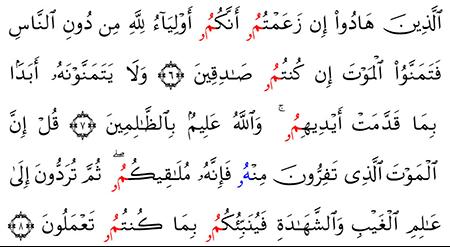 ٱلَّذِينَ هَادُوٓا۟ إِن زَعَمْتُمُۥٓ أَنَّكُمُۥٓ أَوْلِيَآءُ لِلَّهِ مِن دُونِ ٱلنَّاسِ
فَتَمَنَّوُا۟ ٱلْمَوْتَ إِن كُنتُمُۥ صَـٰدِقِينَ ۝٦ وَلَا يَتَمَنَّوْنَهُۥٓ أَبَدًۢا
بِمَا قَدَّمَتْ أَيْدِيهِمُۥ ۚ وَٱللَّهُ عَلِيمٌۢ بِٱلظَّـٰلِمِينَ ۝٧ قُلْ إِنَّ
ٱلْمَوْتَ ٱلَّذِى تَفِرُّونَ مِنْهُۥ فَإِنَّهُۥ مُلَـٰقِيكُمُۥ ۖ ثُمَّ تُرَدُّونَ إِلَىٰ
عَـٰلِمِ ٱلْغَيْبِ وَٱلشَّهَـٰدَةِ فَيُنَبِّئُكُمُۥ بِمَا كُنتُمُۥ تَعْمَلُونَ ۝٨